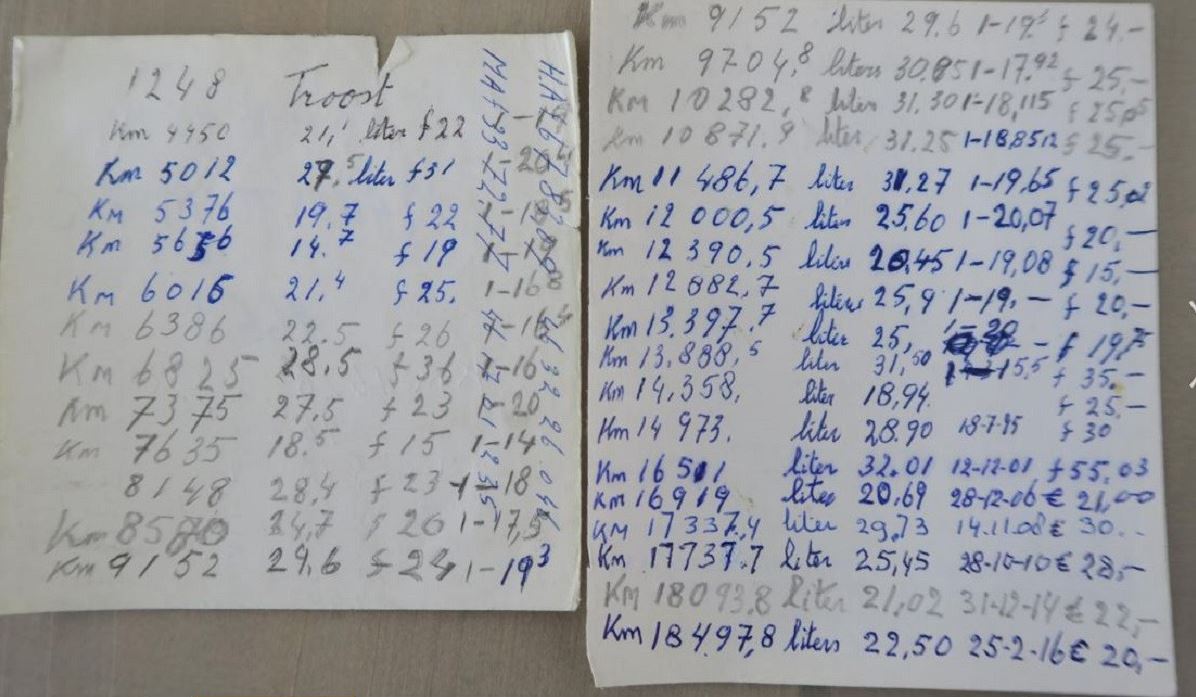 1248 Troost
Km 4450 21,1 liter f22 1-
Km 5012 27.5 liter f31 1-20
Km 5376 19.7 f22
Km 5656 14.7 f19
Km 6015 21,4 f25. 1-168
Km 6386 22.5 f26 1-16
Km 6825 28.5 f36 1-16
Km 7375 27.5 f23 1-20
Km 7635 18.5 f15 1-14
8148 28,4 f23 1-18
Km 8570 24,7 f20 1-17,5
Km 9152 29.6 f24 1-19³
Km 9152 liter 29.6 1-19.³ f 24.-
Km 9704,8 liters 30.85 1-17.92 f 25,-
Km 10282,8 liter 31.30 1-18,115
Km 10871.9 liter 31.25 1-18,8512 f 25.-
Km 11 486,7 liter 31,27 1-19,65 f 25,02
Km 12 000,5 liter 25.60 1-20,07 f 20,-
Km 12 390.5 liter 20,45 1-19,08 f 15,-
Km 12 882,7 liters 25,9 1-19.- f 20,-
Km 13.397.7 liter 25, f 19,75
Km 13.888,5 liter 31,50 f 35.-
Km 14,358, liter 18,94. f 25.-
Km 14 973. liter 28.90 18-7-95 f 30
Km 16511 liter 32.01 12-12-01 f 55,03
Km 16919 liter 20,69 28-12-06 € 21,00
Km 17337,4 liter 29,73 14.11.08 € 30..
Km 17737.7 liter 25,45 28-10-10 € 28,-
Km 18093,8 liter 21,02 31-12-14 € 22,-
Km 18497,8 liters 22,50 25-2-16 € 20,-